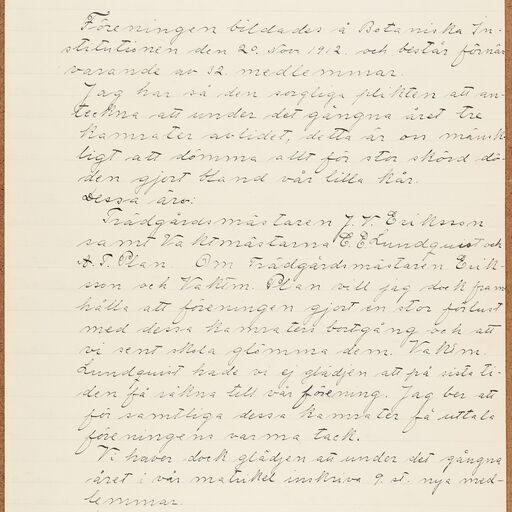 Föreningen bildades å Botaniska In-
stitutionen den 20. Nov 1912. och består förnär
varande av 32. medlemmar.
Jag har så den sorgliga plikten att an-
teckna att under det gångna året tre
kamrater avlidet, detta är om mänsk-
ligt att dömma allt för stor skörd dö-
den gjort bland vår lilla kår.
Dessa äro:
Trädgårdsmästaren J. V. Eriksson
samt Vaktmästarna C E Lundquist och
A. F. Plan. Om Trädgårdsmästaren Erik-
sson och Vaktm. Plan vill jag dock fram
hålla att föreningen gjort en stor förlust
med dessa kamraters bortgång och att
vi sent skola glömma dem. Vaktm.
Lundquist hade vi ej glädjen att på sista ti-
den få räkna till vår förening. Jag ber att
för samtliga dessa kamrater få uttala
föreningens varma tack.
Vi haver dock glädjen att under det gångna
året i vår matrikel inskriva 9. st. nya med-
lemmar.